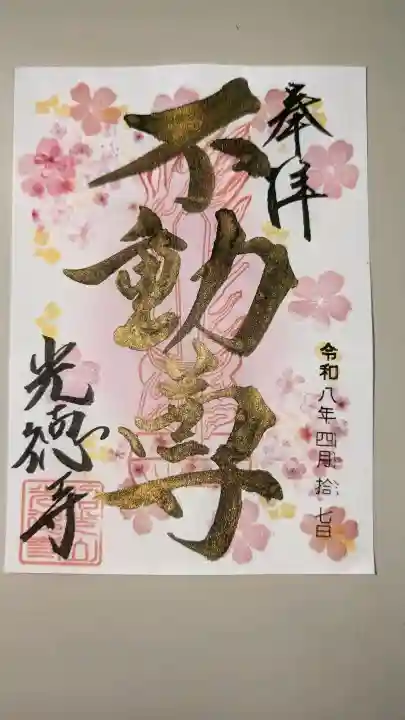 奉拝
令和八年四月拾七日
不動尊
光徳寺